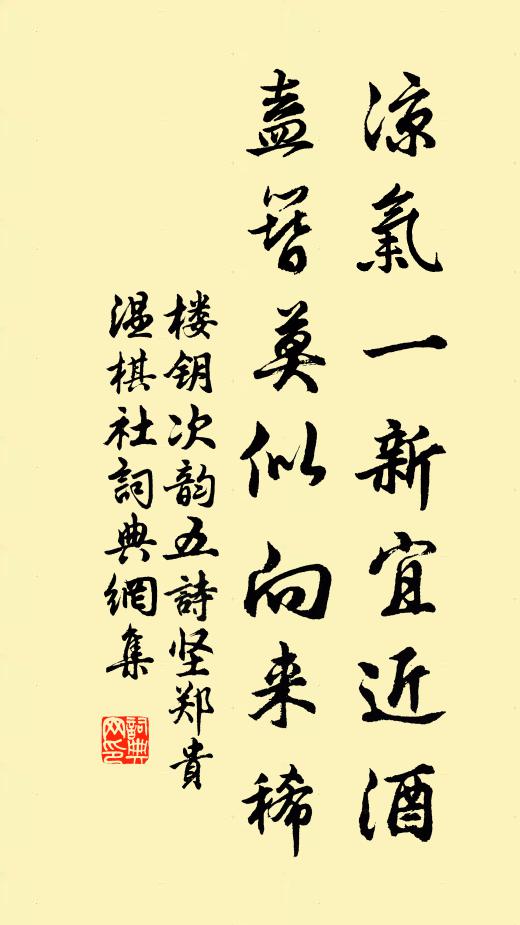 涼氣一新宜近酒
盍簪莫似向来稀
楼钥次韵五詩坚郑貴
温棋社詞典網集
詞典网印